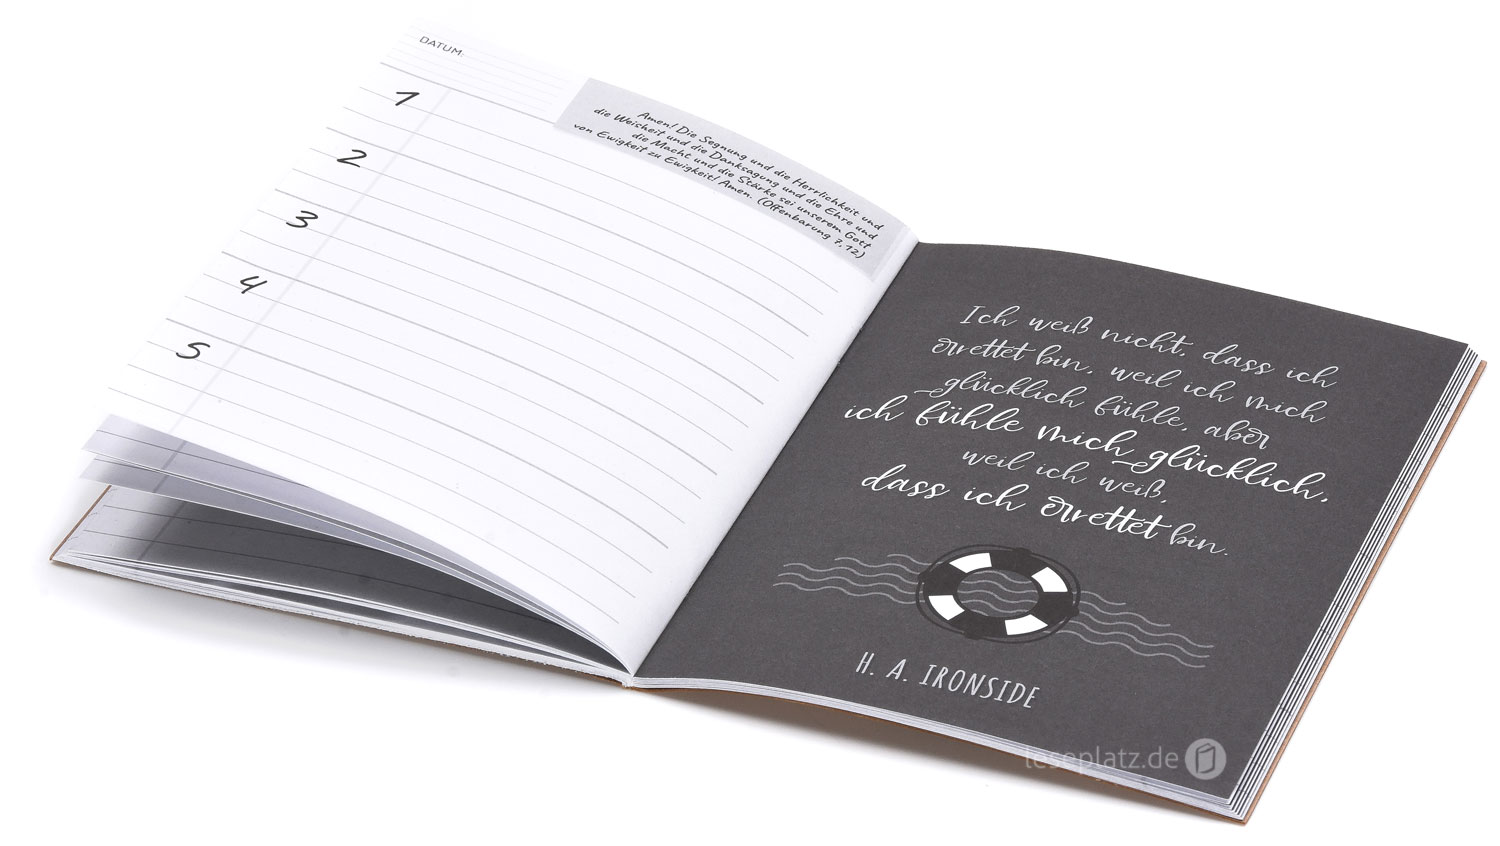 DATUM:
1
2
3
4
5
Amen! Die Segnung und die Herrlichkeit und
die Weisheit und die Danksagung und die Ehre und
die Macht und die Stärke sei unserem Gott
von Ewigkeit zu Ewigkeit! Amen. (Offenbarung 7,12)
Ich weiß nicht, dass ich
errettet bin, weil ich mich
glücklich fühle, aber
ich fühle mich glücklich,
weil ich weiß,
dass ich errettet bin.
H. A. IRONSIDE
leseplatz.de